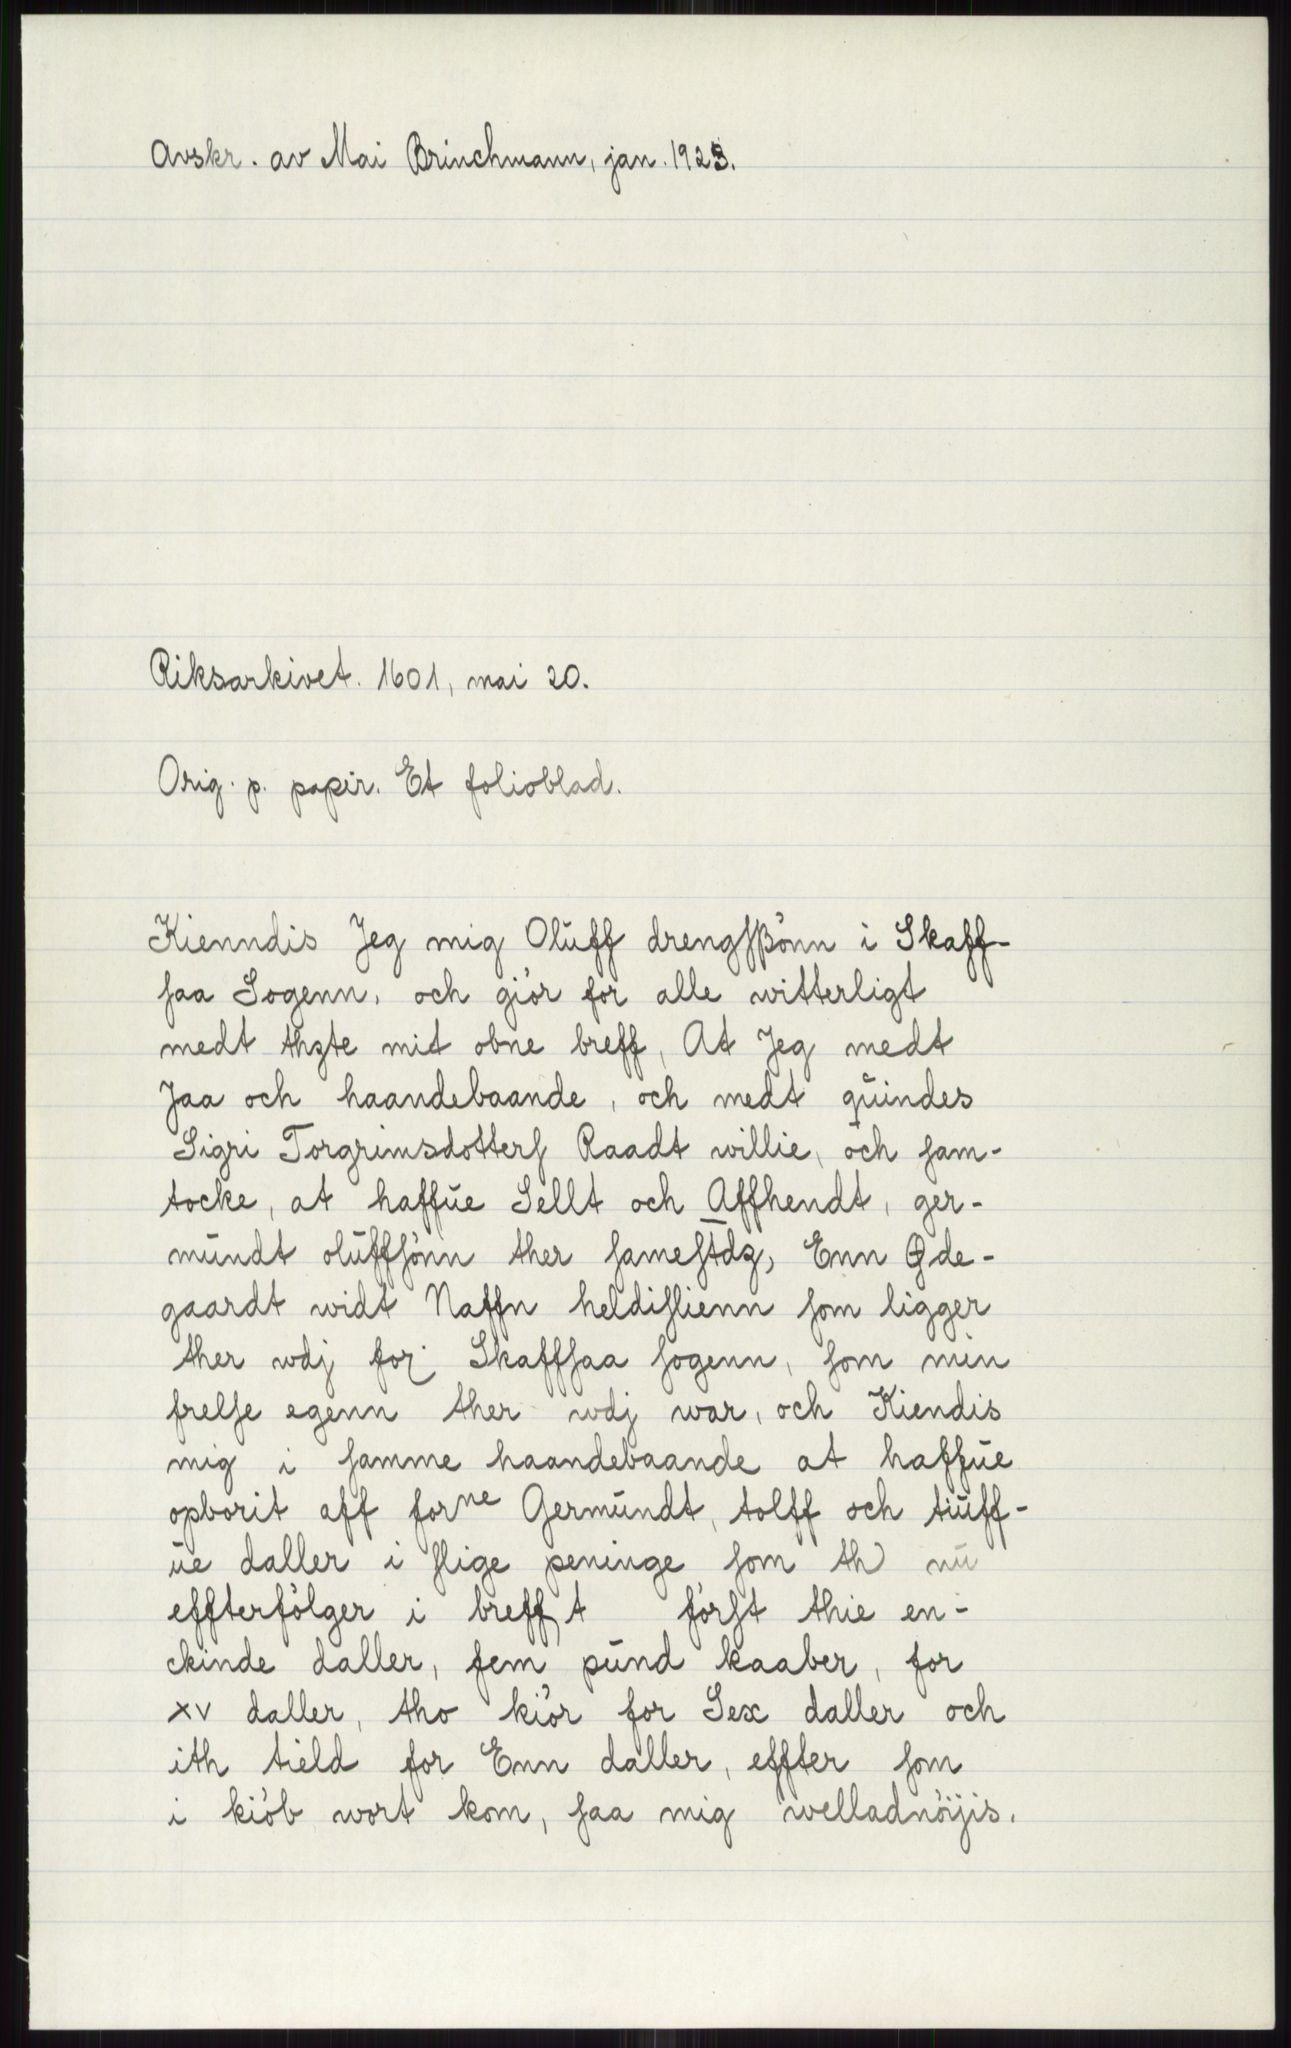 Avskr. av Mai Brinchmann, jan. 1923.
Riksarkivet. 1601, mai 20.
Orig. p. papir. Et folioblad.
Kienndis Jeg mig Oluff drengsßönn i Skaff-
saa Sogenn, och giör for alle witterligt
medt thzte mit obne breff, At Jeg medt
Jaa och haandebaande, och medt quindes
Sigri Torgrimsdotters Raadt willie, och sam-
tocke, at haffue Sellt och Affhendt, ger-
mundt oluffsönn ther samestdz, Enn Øde-
gaardt widt Naffn heldislienn som ligger
ther wdj for Skaffsaa sogenn, som min
frelse egenn ther wdj war, och Kiendis
mig i samme haandebaande at haffue
opborit aff forne Germundt, tolff och tiuff-
ue daller i slige peninge som th nu
effterfölger i brefft först thie en-
ckinde daller, fem pund kaaber, for
xv daller, tho kiör for Sex daller och
ith tield for Enn daller, effter som
i kiöb wort kom, saa mig welladnöijis.